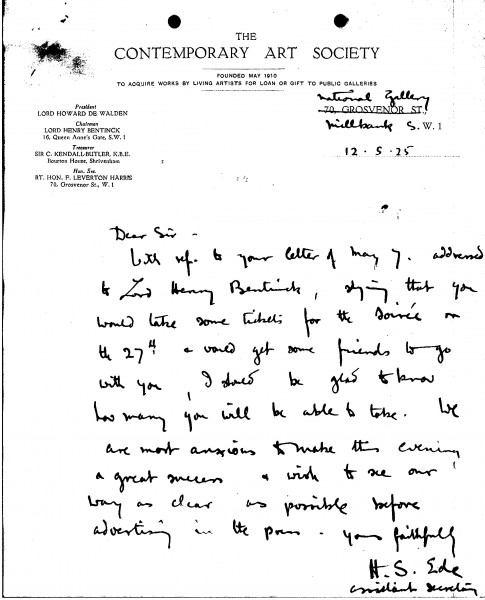 THE
CONTEMPORARY ART SOCIETY
FOUNDED MAY 1910
TO ACQUIRE WORKS BY LIVING ARTISTS FOR LOAN OR GIFT TO PUBLIC GALLERIES
President
LORD HOWARD DE WALDEN
Chairman
LORD HENRY BENTINCK
16, Queen Anne's Gate, S.W. 1
Treasurer
SIR C. KENDALL-BUTLER, K.B.E.
Bourton House, Shrivenham
Hon. Sec.
RT. HON. F. LEVERTON HARRIS
70, Grosvenor St., W. 1
National Gallery
70, GROSVENOR ST.,
Millbank S.W. 1
12.5.25
Dear Sir -
With ref. to your letter of May 7. addressed
to Lord Henry Bentinck, saying that you
would take some tickets for the Soirée on
the 27th & would get some friends to go
with you, I should be glad to know
how many you will be able to take. We
are most anxious to make this evening
a great success & wish to see our
way as clear as possible before
advertising in the press. yours faithfully
H. S. Ede
assistant secretary